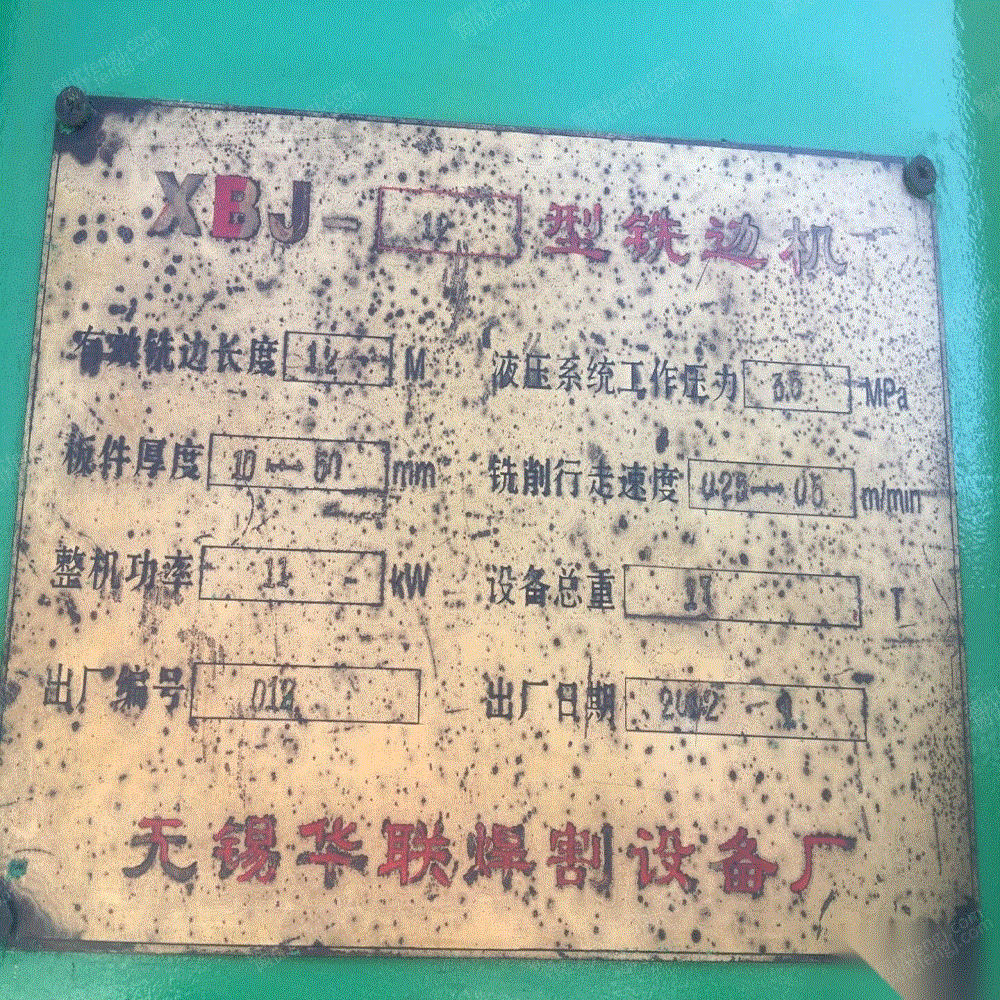 XBJ-12型铣边机
有效铣边长度 12 M 液压系统工作压力 3.5 MPa
板件厚度 10—50 mm 铣削行走速度 m/min
整机功率 11 kW 设备总重 17 T
出厂编号 012 出厂日期
无锡华联焊割设备厂